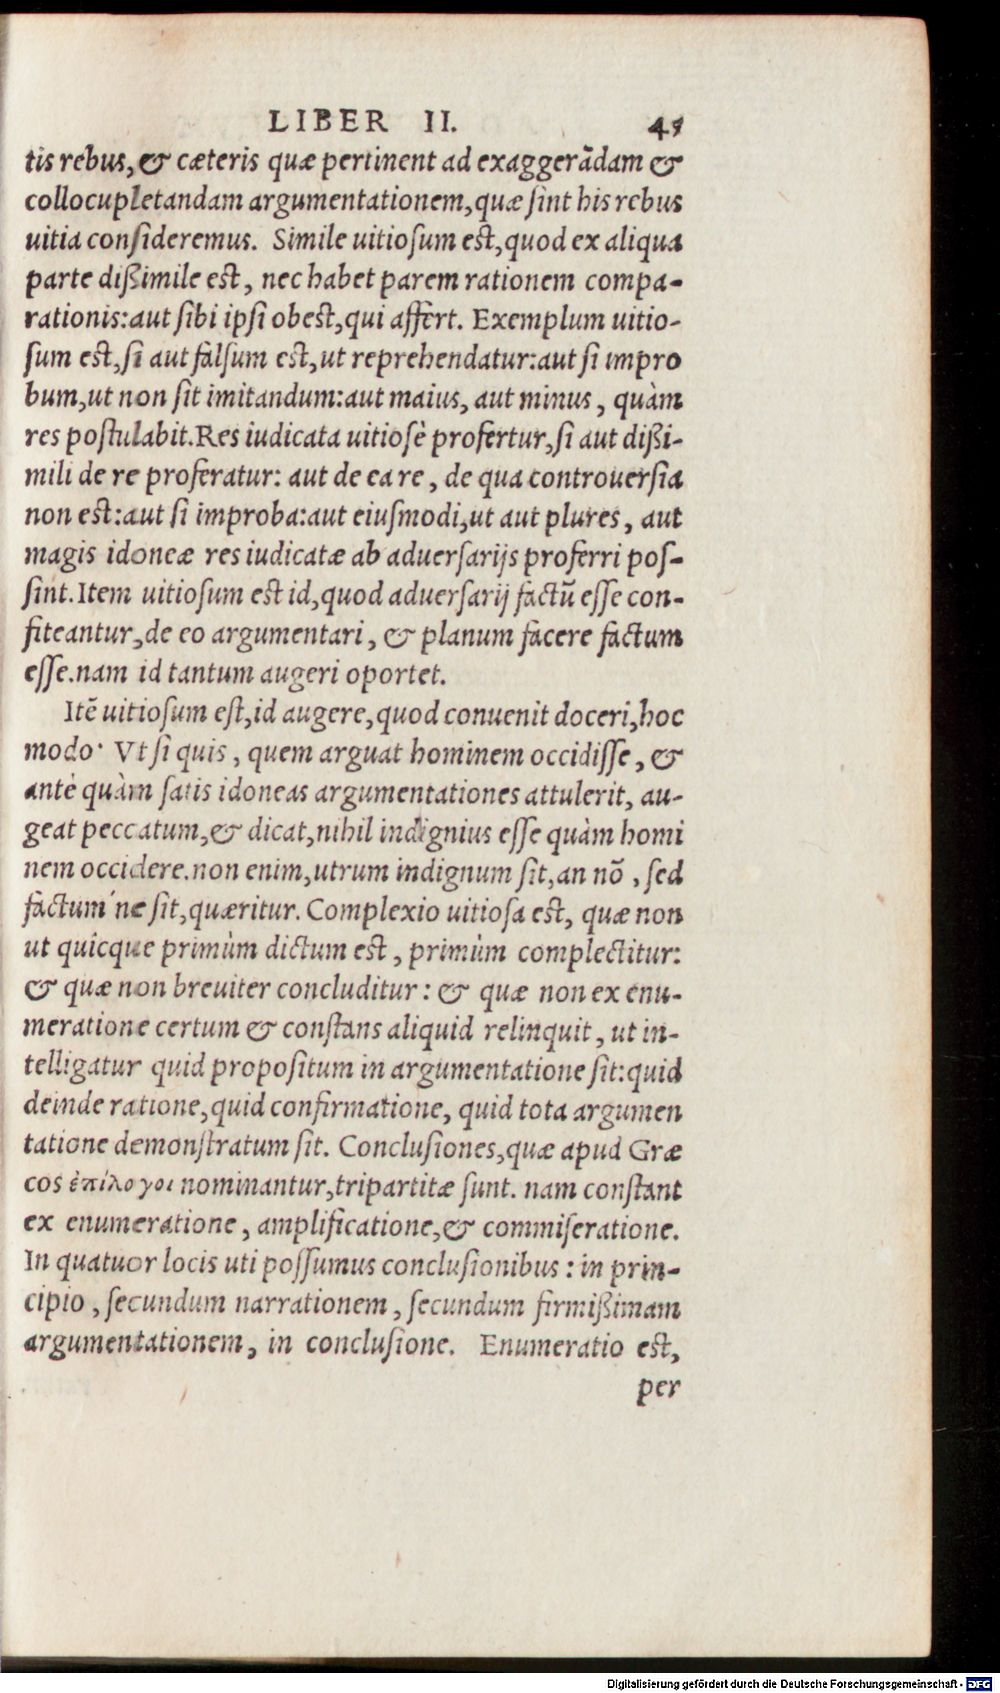 LIBER II. 45
tis rebus, & cæteris quæ pertinent ad exaggerãdam &
collocupletandam argumentationem, quæ ſint his rebus
uitia conſideremus. Simile uitioſum est, quod ex aliqua
parte dißimile est, nec habet parem rationem compa-
rationis: aut ſibi ipſi obest, qui affert. Exemplum uitio-
ſum est, ſi aut falſum est, ut reprehendatur: aut ſi impro
bum, ut non ſit imitandum: aut maius, aut minus, quàm
res poſtulabit. Res iudicata uitioſè profertur, ſi aut dißi-
mili de re proferatur: aut de ea re, de qua controuerſia
non est: aut ſi improba: aut eiuſmodi, ut aut plures, aut
magis idoneæ res iudicatæ ab aduerſarijs proferri poſ-
ſint. Item uitioſum est id, quod aduerſarij factũ eſſe con-
fiteantur, de eo argumentari, & planum facere factum
eſſe. nam id tantum augeri oportet.
Itẽ uitioſum eſt, id augere, quod conuenit doceri, hoc
modo· Vt ſi quis, quem arguat hominem occidiſſe, &
antè quàm ſatis idoneas argumentationes attulerit, au-
geat peccatum, & dicat, nihil indignius eſſe quàm homi
nem occidere. non enim, utrum indignum ſit, an nõ, ſed
factum'ne ſit, quæritur. Complexio uitioſa est, quæ non
ut quicque primùm dictum est, primùm complectitur:
& quæ non breuiter concluditur: & quæ non ex enu-
meratione certum & conſtans aliquid relinquit, ut in-
telligatur quid propoſitum in argumentatione ſit: quid
deinde ratione, quid confirmatione, quid tota argumen
tatione demonſtratum ſit. Concluſiones, quæ apud Græ
cos ἐπίλογοι nominantur, tripartitæ ſunt. nam conſtant
ex enumeratione, amplificatione, & commiſeratione.
In quatuor locis uti poſſumus concluſionibus: in prin-
cipio, ſecundum narrationem, ſecundum firmißimam
argumentationem, in concluſione. Enumeratio est,
per
Digitalisierung gefördert durch die Deutsche Forschungsgemeinschaft - DFG